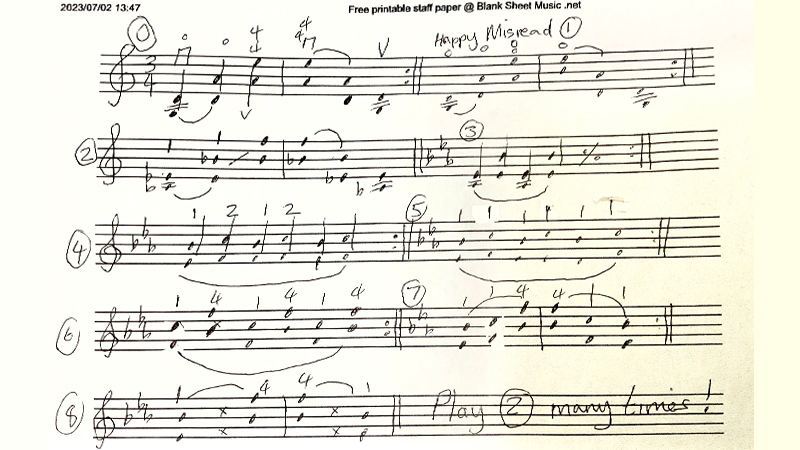 2023/07/02 13:47 Free printable staff paper @ Blank Sheet Music .net
0 4 4 4 V Happy Misread 1
3 4
V
2 1 3
4 1 2 1 2 5 1 1 1 1 1 1
6 1 4 1 4 1 4 7 1 1 4 4 1 1
8 1 4 4 1 Play 2 many times!